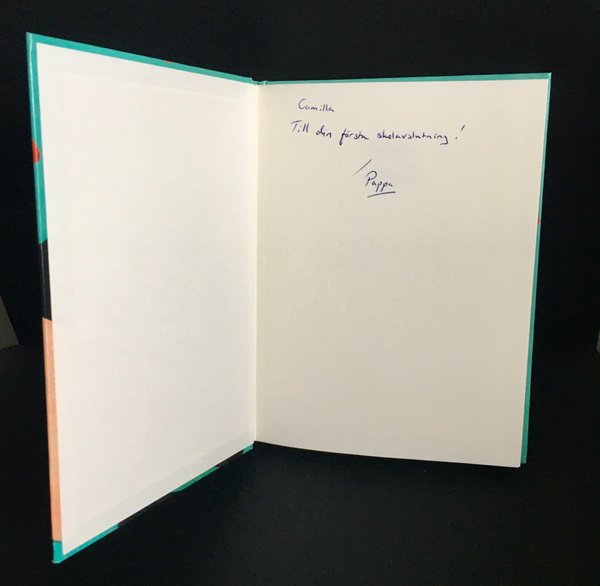 Camilla
Till din första skolavslutning!
/
Pappa